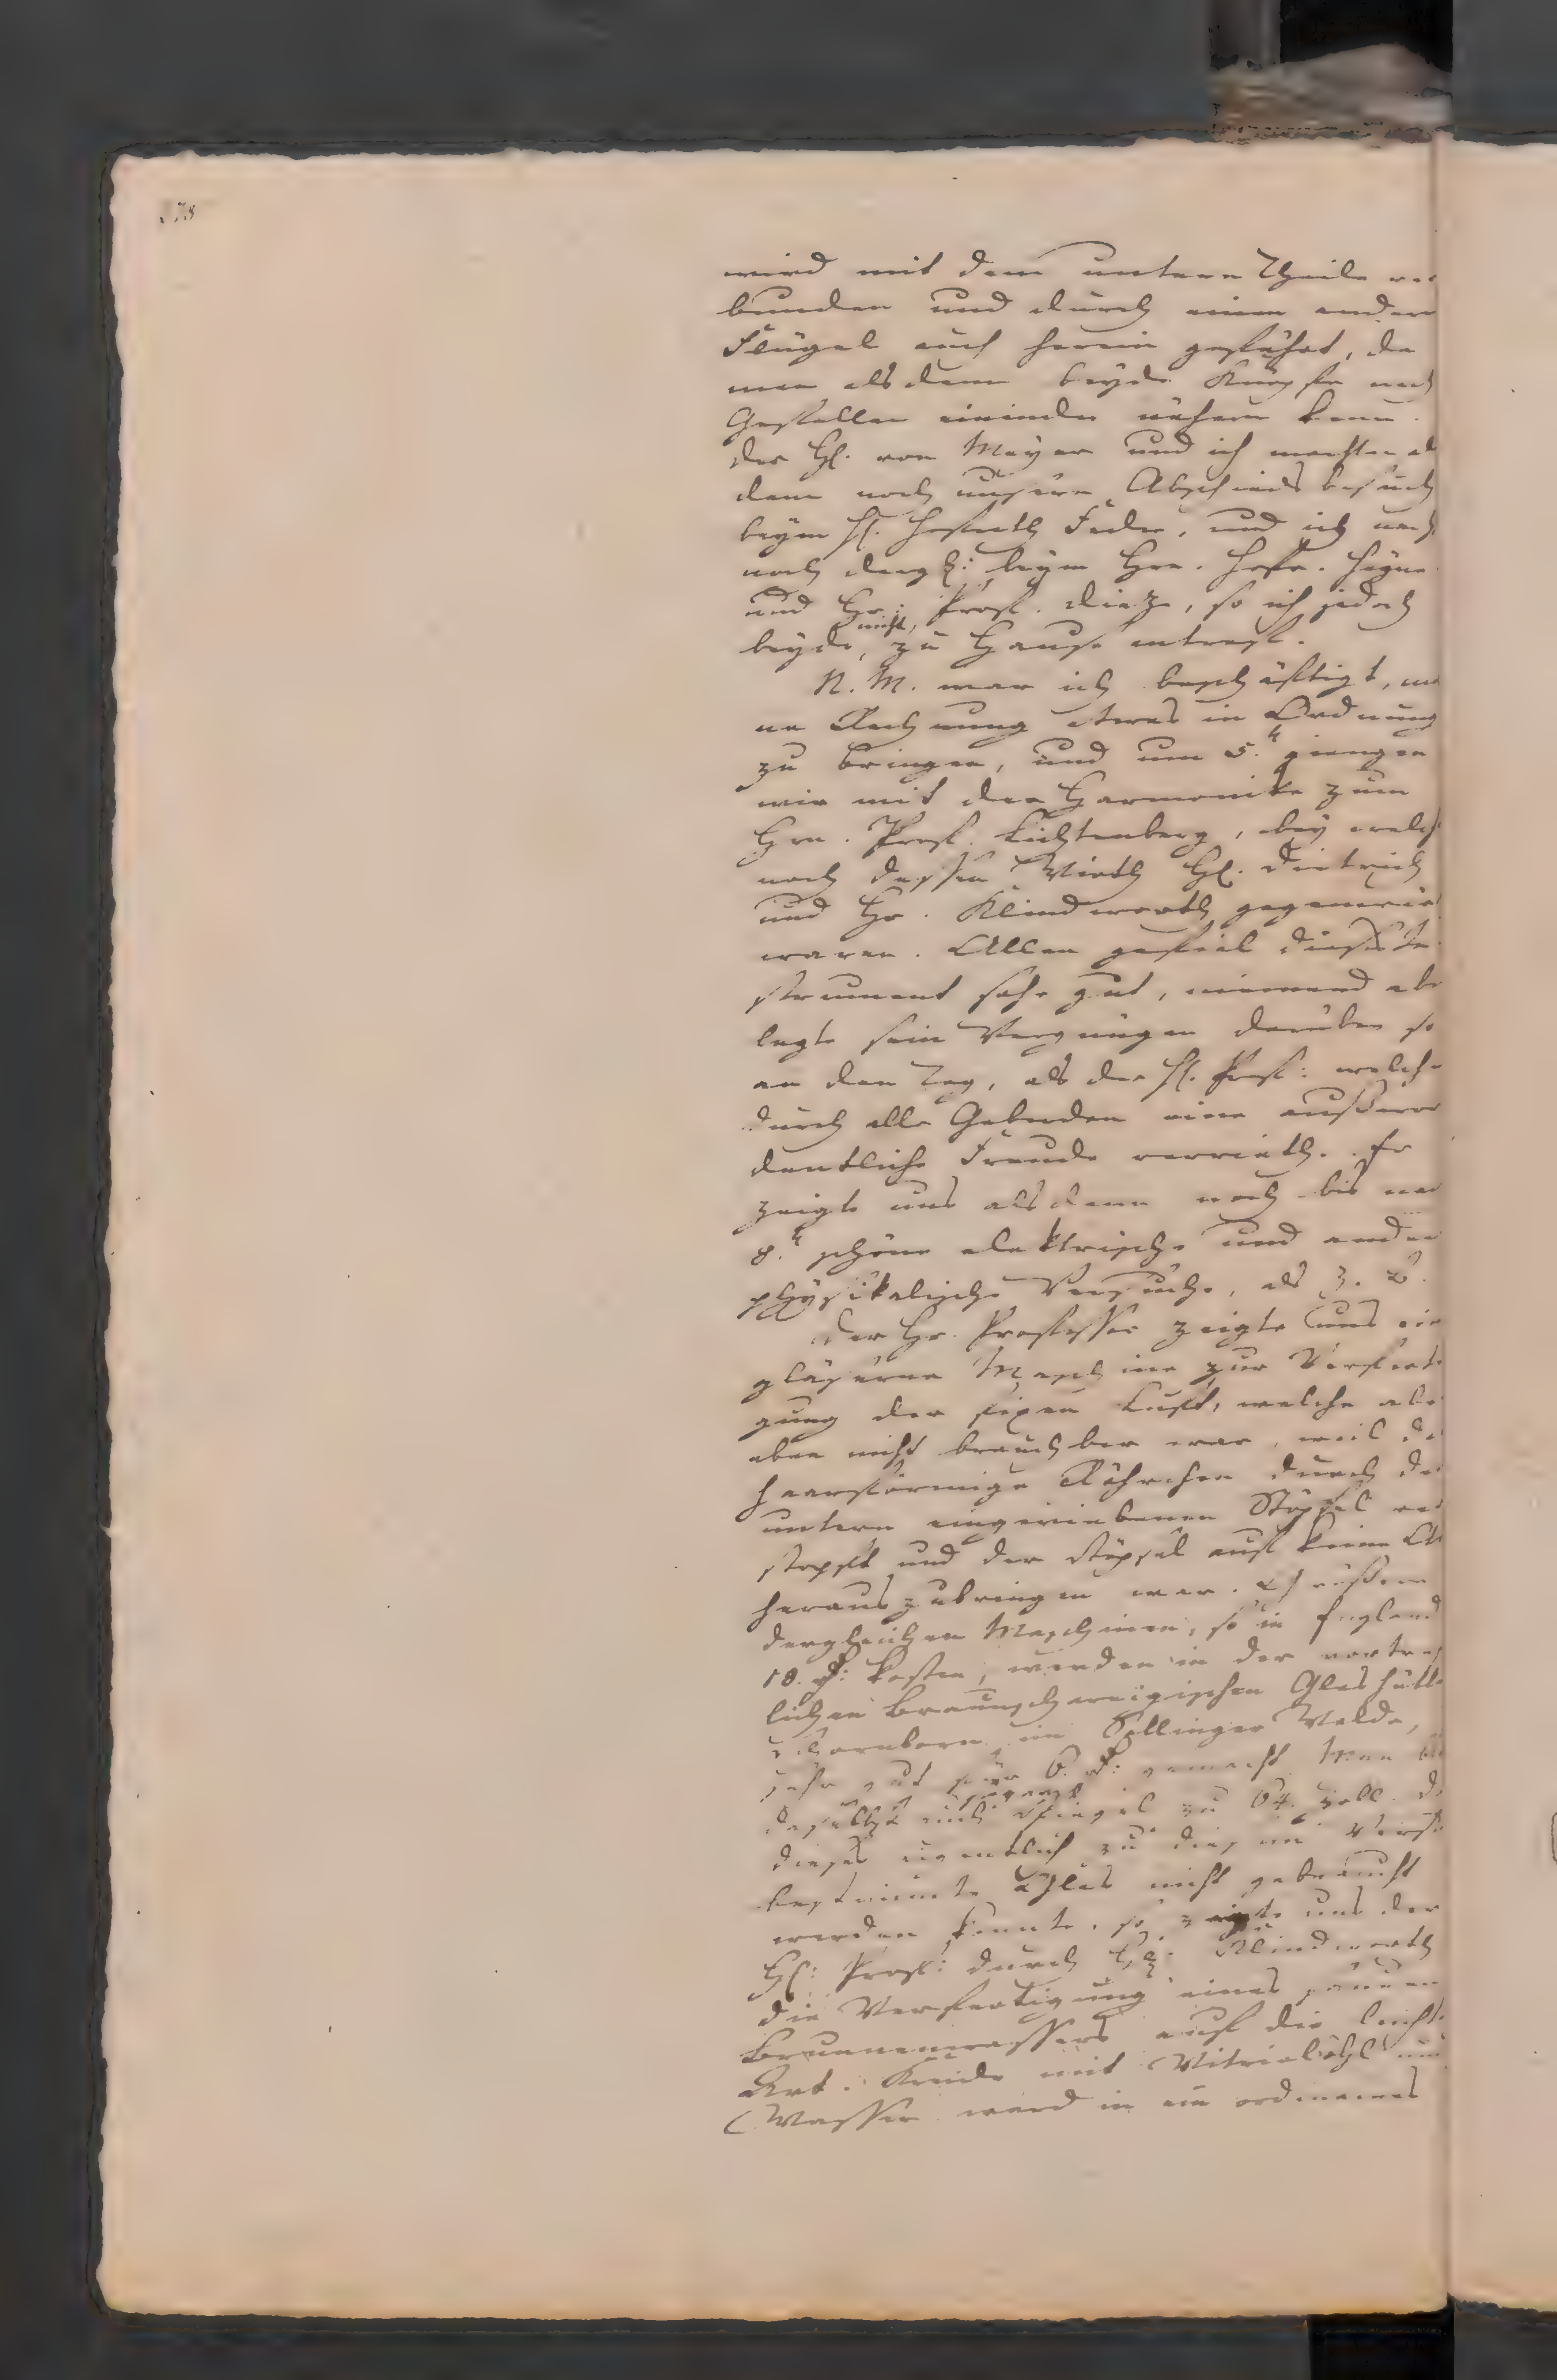 278
wird mit dem untern Theile ver
bunden und durch einen andern
Flügel auch herein geführt, da
man alsdann beyde Knöpfe nach
Gefallen einander nähern kann.
der H. von Meyer und ich machten als
dann noch unsern Abschiedsbesuch
beym H. Hofrath Feder, und ich nach
noch dergl: beym Hrn. Hofr. Heyne
und Hr: Prof. Dieze, so ich jedoch
beyde, nicht, zu Hause antraf.
N. M. war ich beschäftigt, mei
ne Rechnung etwas in Ordnung
zu bringen, und um 5. giengen
wir mit der Harmonika zum
Hrn. Prof. Lichtenberg, bey welch
noch dessen Wirth H. Dietrich
und Hr. Klindworth gegenwär
waren. Allen gefiel dieses In
strument sehr gut, niemand abe
legte sein Vergnügen darüber so
an den Tag, als der H. Prof: welche
durch alle Gebärden eine außeror
dentliche Freude verrieth. Er
zeigte uns alsdann noch bis nac
8. schöne elektrische und andere
physikalische Versuche, als z. B.
Der Hr. Professor zeigte uns ein
gläserne Maschine zur Verferti
gung der fixen Luft, welche abe
eben nicht brauchbar war, weil di
haarförmige Röhrchen durch den
untern eingeriebenen Stöpsel ver
stopft und der Stöpsel auf keine Art
herauszubringen war.
dergleichen Maschinen, so in England
18. kosten, werden in der vortref
lichen Braunschweigischen Glashütte
im Sollinger Walde,
sehr gut für 6. gemacht. Man
daselbst auch Spiegel zu 64. Zoll. Da
dieses eigentlich zu diesem Versu
bestimmte Glas nicht gebraucht
werden konnte, so zeigte uns der
H: Prof: durch H: Klindworth
die Verfertigung eines sauern
Brunnenwassers auf die leichte
Art. Kreide mit Vitriolöhl und
Wasser ward in ein ordinaires